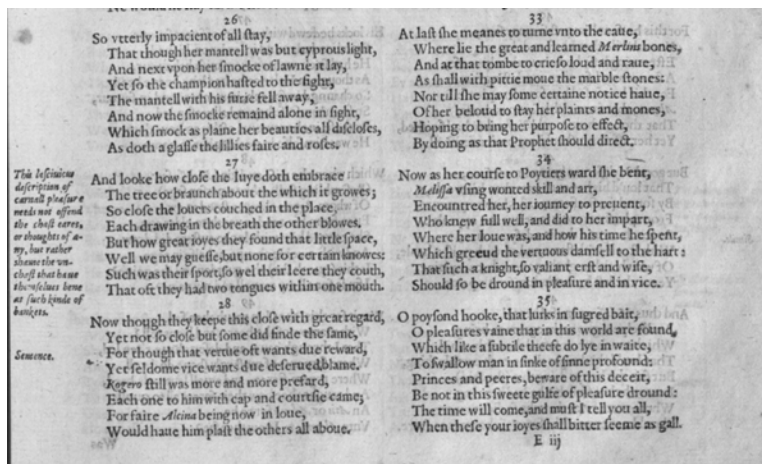 26
So vtterly impacient of all stay,
That though her mantell was but cyprous light,
And next vpon her smocke of lawne it lay,
Yet so the champion hasted to the fight,
The mantell with his furie fell away,
And now the smocke remaind alone in sight,
Which smock as plaine her beauties all discloses,
As doth a glasse the lillies faire and roses.
27
And looke how close the Iuye doth embrace
The tree or braunch about the which it growes;
So close the louers couched in the place,
Each drawing in the breath the other blowes.
But how great ioyes they found that little space,
Well we may guesse, but none for certain knowes:
Such was their sport, so wel their leere they couth,
That oft they had two tongues within one mouth.
28
Now though they keepe this close with great regard,
Yet not so close but some did finde the same,
For though that vertue oft wants due reward,
Yet seldome vice wants due deserued blame.
Rogero still was more and more prefard,
Each one to him with cap and courtsie came;
For faire Alcina being now in loue,
Would haue him plast the others all aboue.
This lasciuious
description of
carnall pleasure
needs not offend
the chast eares,
or thoughts of a-
ny, but rather
shame the vn-
chast that haue
themselues bene
at such kinde of
bankets.
Sentence.
33
At last she meanes to turne vnto the caue,
Where lie the great and learned Merlins bones,
And at that tombe to crie so loud and raue,
As shall with pittie moue the marble stones:
Nor till she may some certaine notice haue,
Of her beloud to stay her plaints and mones,
Hoping to bring her purpose to effect,
By doing as that Prophet should direct.
34
Now as her course to Poytiers ward she bent,
Melissa vsing wonted skill and art,
Encountred her, her iourney to preuent,
Who knew full well, and did to her impart,
Where her loue was, and how his time he spent,
Which greeud the vertuous damsell to the hart:
That such a knight, so valiant erst and wise,
Should so be dround in pleasure and in vice.
35
O poysond hooke, that lurks in sugred bait,
O pleasures vaine that in this world are found,
Which like a subtile theefe do lye in waite,
To swallow man in sinke of sinne profound:
Princes and peeres, beware of this deceit,
Be not in this sweete gulfe of pleasure dround:
The time will come, and must I tell you all,
When these your ioyes shall bitter seeme as gall.
E iij